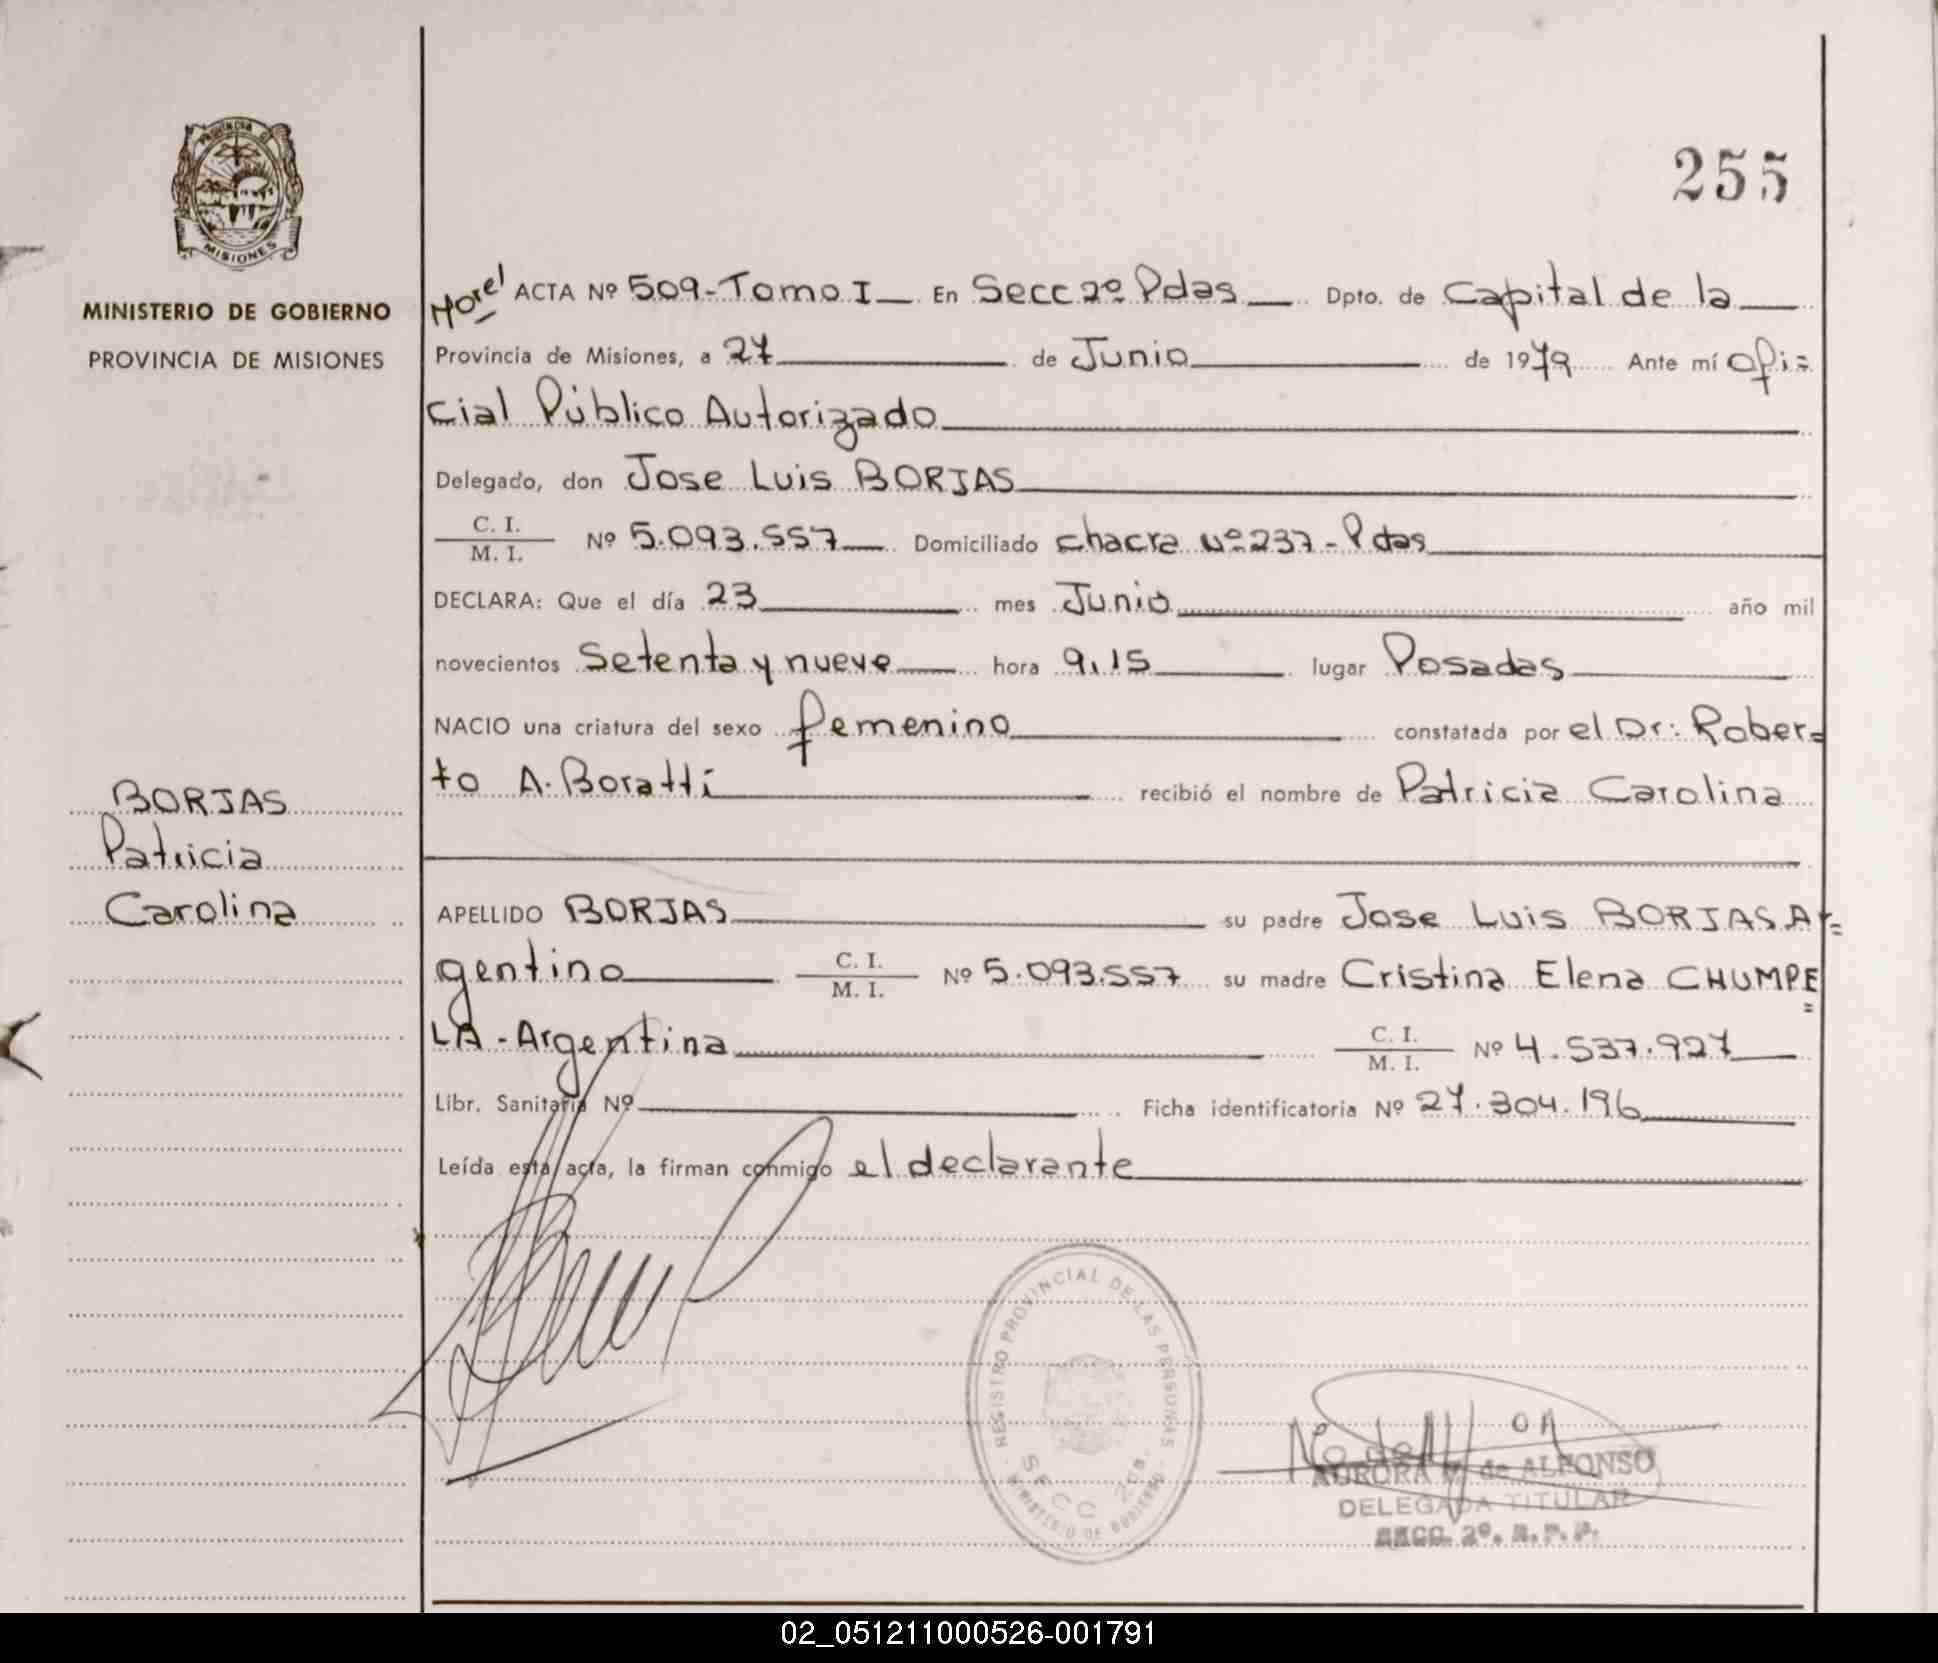 PROVINCIA DE
MISIONES
MINISTERIO DE GOBIERNO
PROVINCIA DE MISIONES
BORJAS
Patricia
Carolina
255
ACTA Nº 509-Tomo I En Secc 2º Pdas Dpto. de Capital de la
Provincia de Misiones, a 27 de Junio de 1979 Ante mí ofi=
cial Público Autorizado
Delegado, don Jose Luis BORJAS
C. I.
M. I. Nº 5.093.557 Domiciliado chacra Nº 237 - Pdas
DECLARA: Que el día 23 mes Junio año mil
novecientos Setenta y nueve hora 9.15 lugar Posadas
NACIO una criatura del sexo femenino constatada por el Dr: Rober=
to A. Boratti recibió el nombre de Patricia Carolina
APELLIDO BORJAS su padre Jose Luis BORJAS Ar=
gentino C. I. M. I. Nº 5.093.557 su madre Cristina Elena CHUMPE=
LA - Argentina C. I. M. I. Nº 4.537.927
Libr. Sanitaria Nº Ficha identificatoria Nº 27.304.196
Leída esta acta, la firman conmigo el declarante
REGISTRO PROVINCIAL DE LAS PERSONAS
SECC 2da.
MINISTERIO DE GOBIERNO
AURORA M. de ALFONSO
DELEGADA TITULAR
SECC. 2º. R.P.P.
02_051211000526-001791